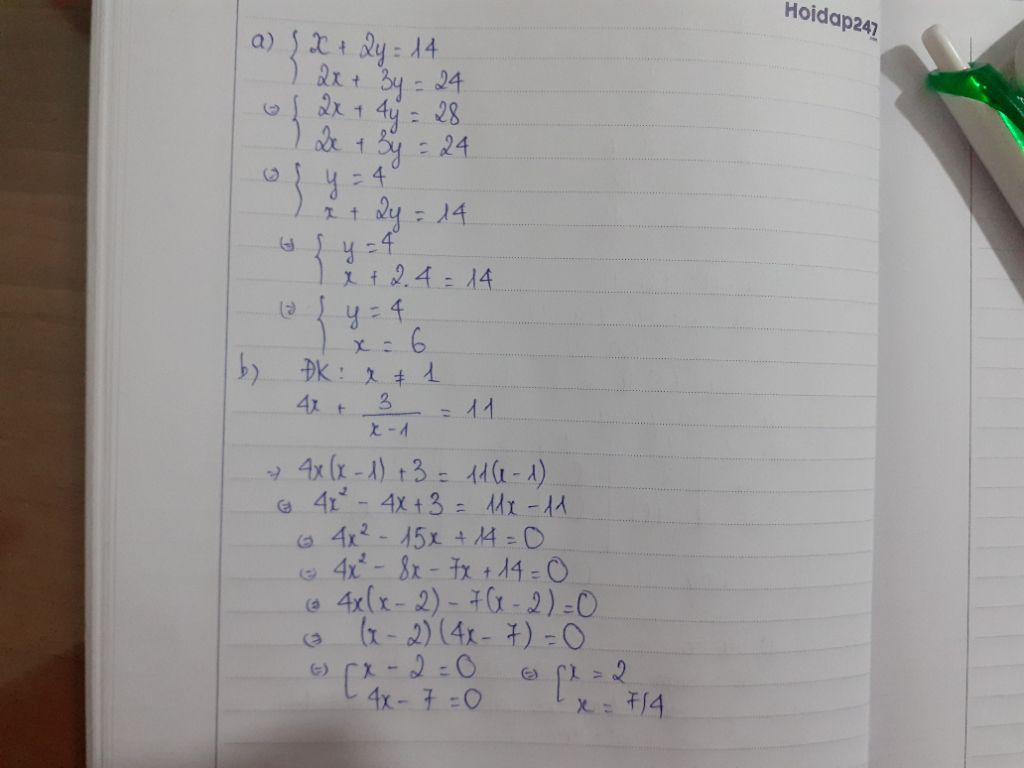 Hoidap247
a) { x + 2y = 14
2x + 3y = 24
⇔ { 2x + 4y = 28
2x + 3y = 24
⇔ { y = 4
x + 2y = 14
⇔ { y = 4
x + 2.4 = 14
⇔ { y = 4
x = 6
b) ĐK: x ≠ 1
4x + 3/(x-1) = 11
⇒ 4x(x-1) + 3 = 11(x-1)
⇔ 4x² - 4x + 3 = 11x - 11
⇔ 4x² - 15x + 14 = 0
⇔ 4x² - 8x - 7x + 14 = 0
⇔ 4x(x-2) - 7(x-2) = 0
⇔ (x-2)(4x-7) = 0
⇔ [ x - 2 = 0 ⇔ [ x = 2
4x - 7 = 0 x = 7/4